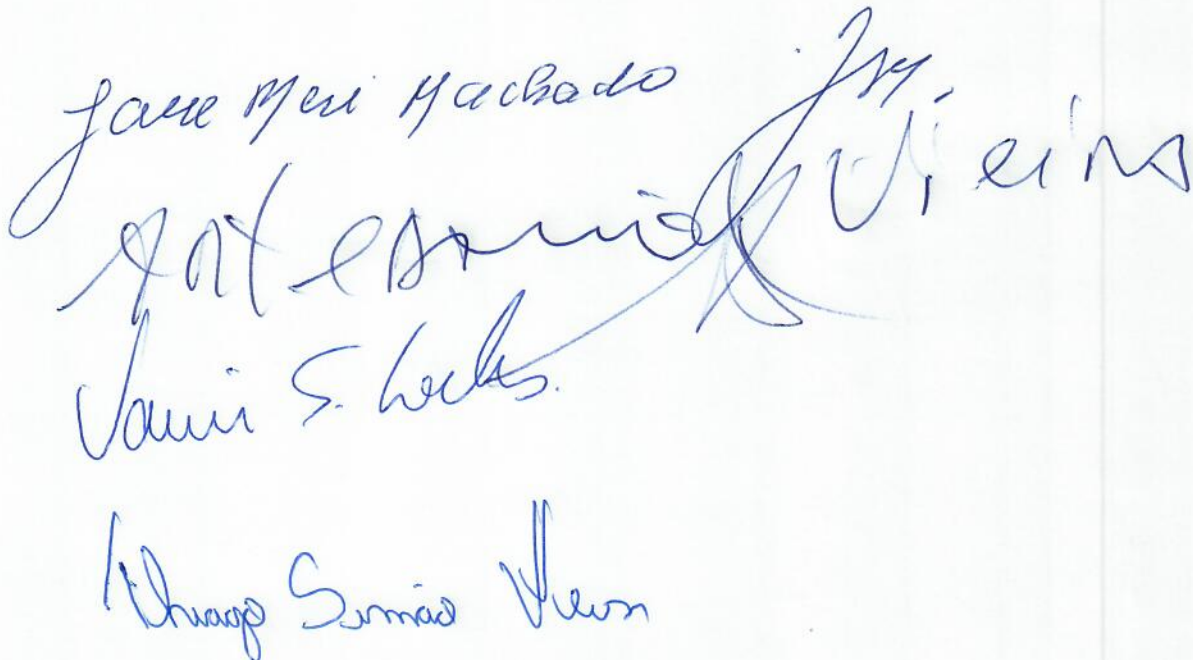 Jane Meri Machado
Vieira
Vanir S. Locks.
Thiago Simão Vieira